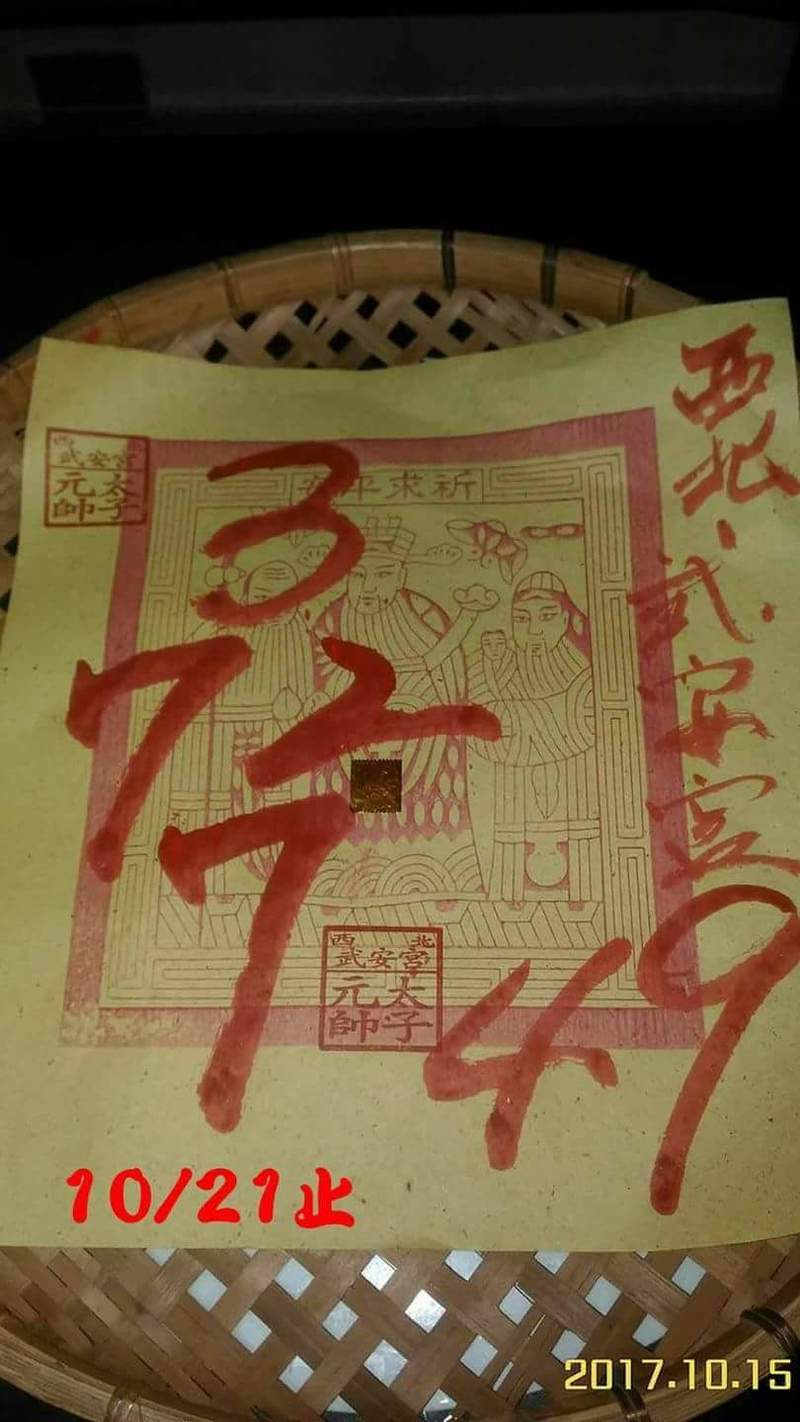 西北、武安宮
祈求平安
西北
武安宮
太子
元帥
3
7 2
7
49
西北
武安宮
太子
元帥
10/21止
2017.10.15